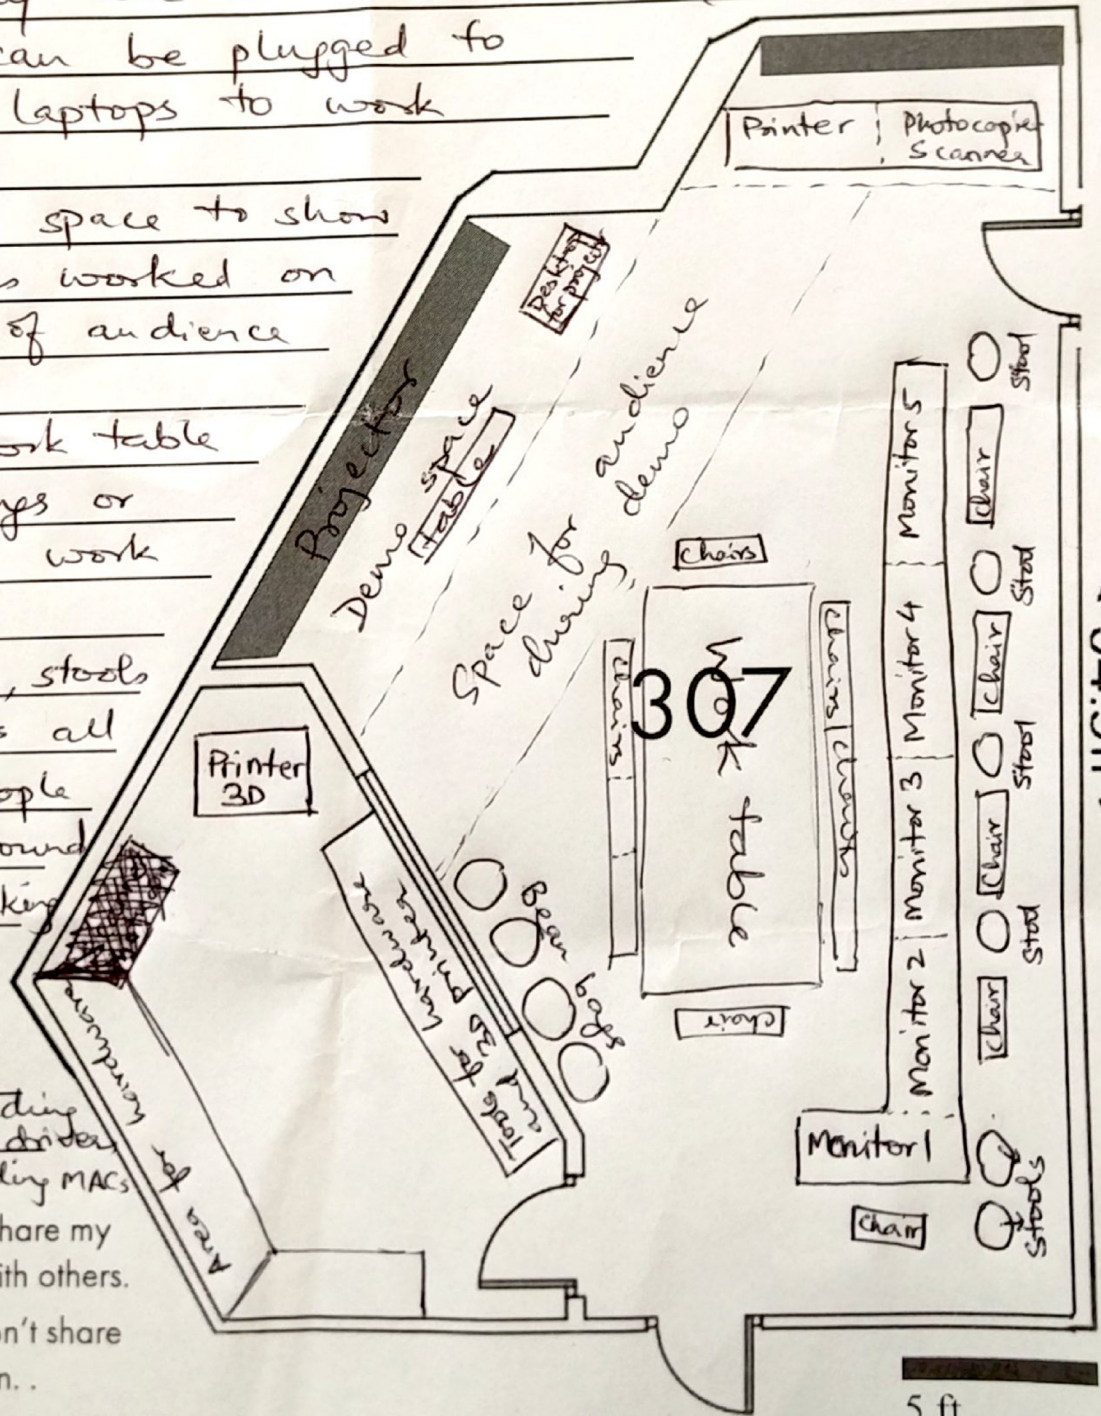 can be plugged to
laptops to work
space to show
worked on
of audience
work table
or
work
, stools
all
driver,
MACs
share my
with others.
n't share
n. .
Printer
Photocopier
Scanner
Desktop
for projector
Projector
Demo space
table
Space for audience
during demo
chairs
chairs
chairs
chairs
chair
307
Work table
Monitor 5
Monitor 4
Monitor 3
Monitor 2
Monitor 1
Stool
chair
Stool
chair
Stool
Chair
Stool
chair
Stools
Chair
Printer
3D
Tools for hardware
and 3D printer
Bean
bags
Area for hardware
5 ft